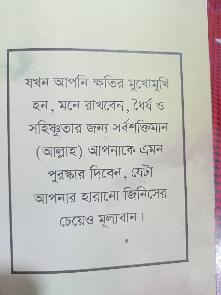 যখন আপনি ক্ষতির মুখোমুখি
হন, মনে রাখবেন, ধৈর্য ও
সহিষ্ণুতার জন্য সর্বশক্তিমান
(আল্লাহ) আপনাকে এমন
পুরস্কার দিবেন, যেটা
আপনার হারানো জিনিসের
চেয়েও মূল্যবান।